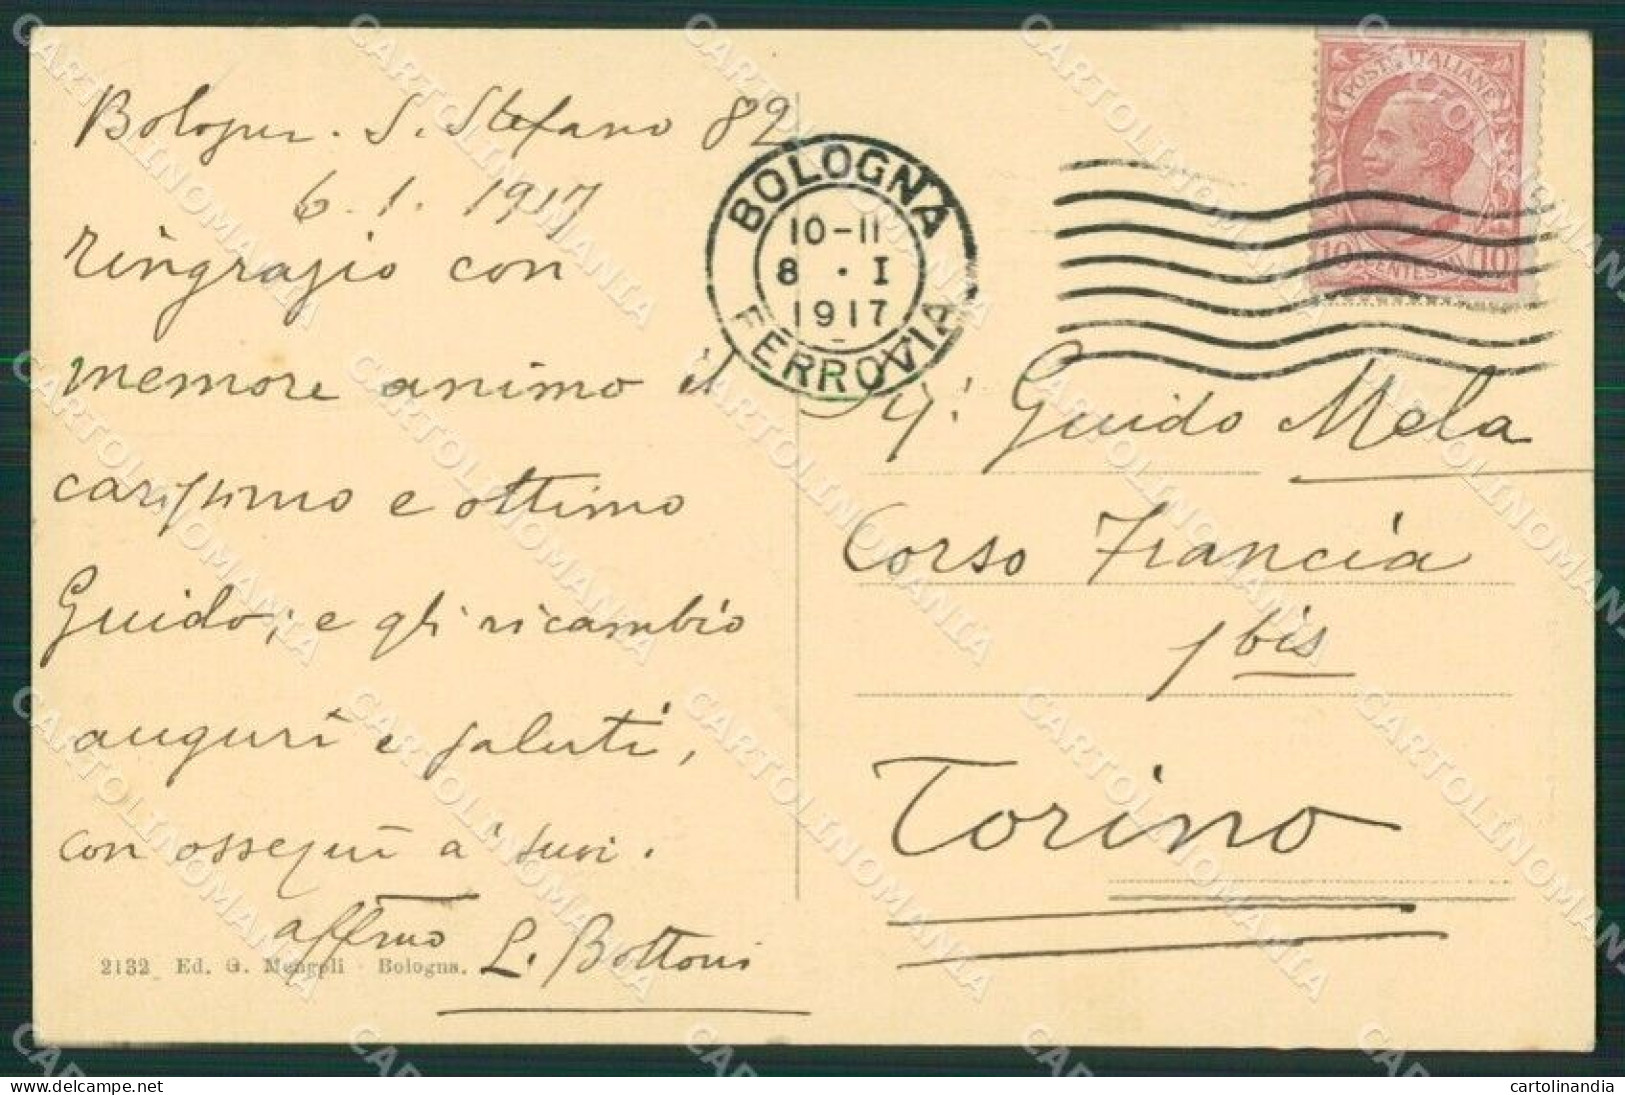 Bologna. S. Stefano 82
6.1.1917
ringrazio con
memore animo il
carissimo e ottimo
Guido; e gli ricambio
auguri e saluti,
con ossequi a' suoi.
affmo
L. Bottoni
2132 Ed. G. Mengoli - Bologna.
BOLOGNA
10-11
8 · I
1917
FERROVIA
POSTE ITALIANE
10 CENTESIMI 10
Sig. Guido Mela
Corso Francia
1 bis
Torino
CARTOLINOMANIA
cartolinandia